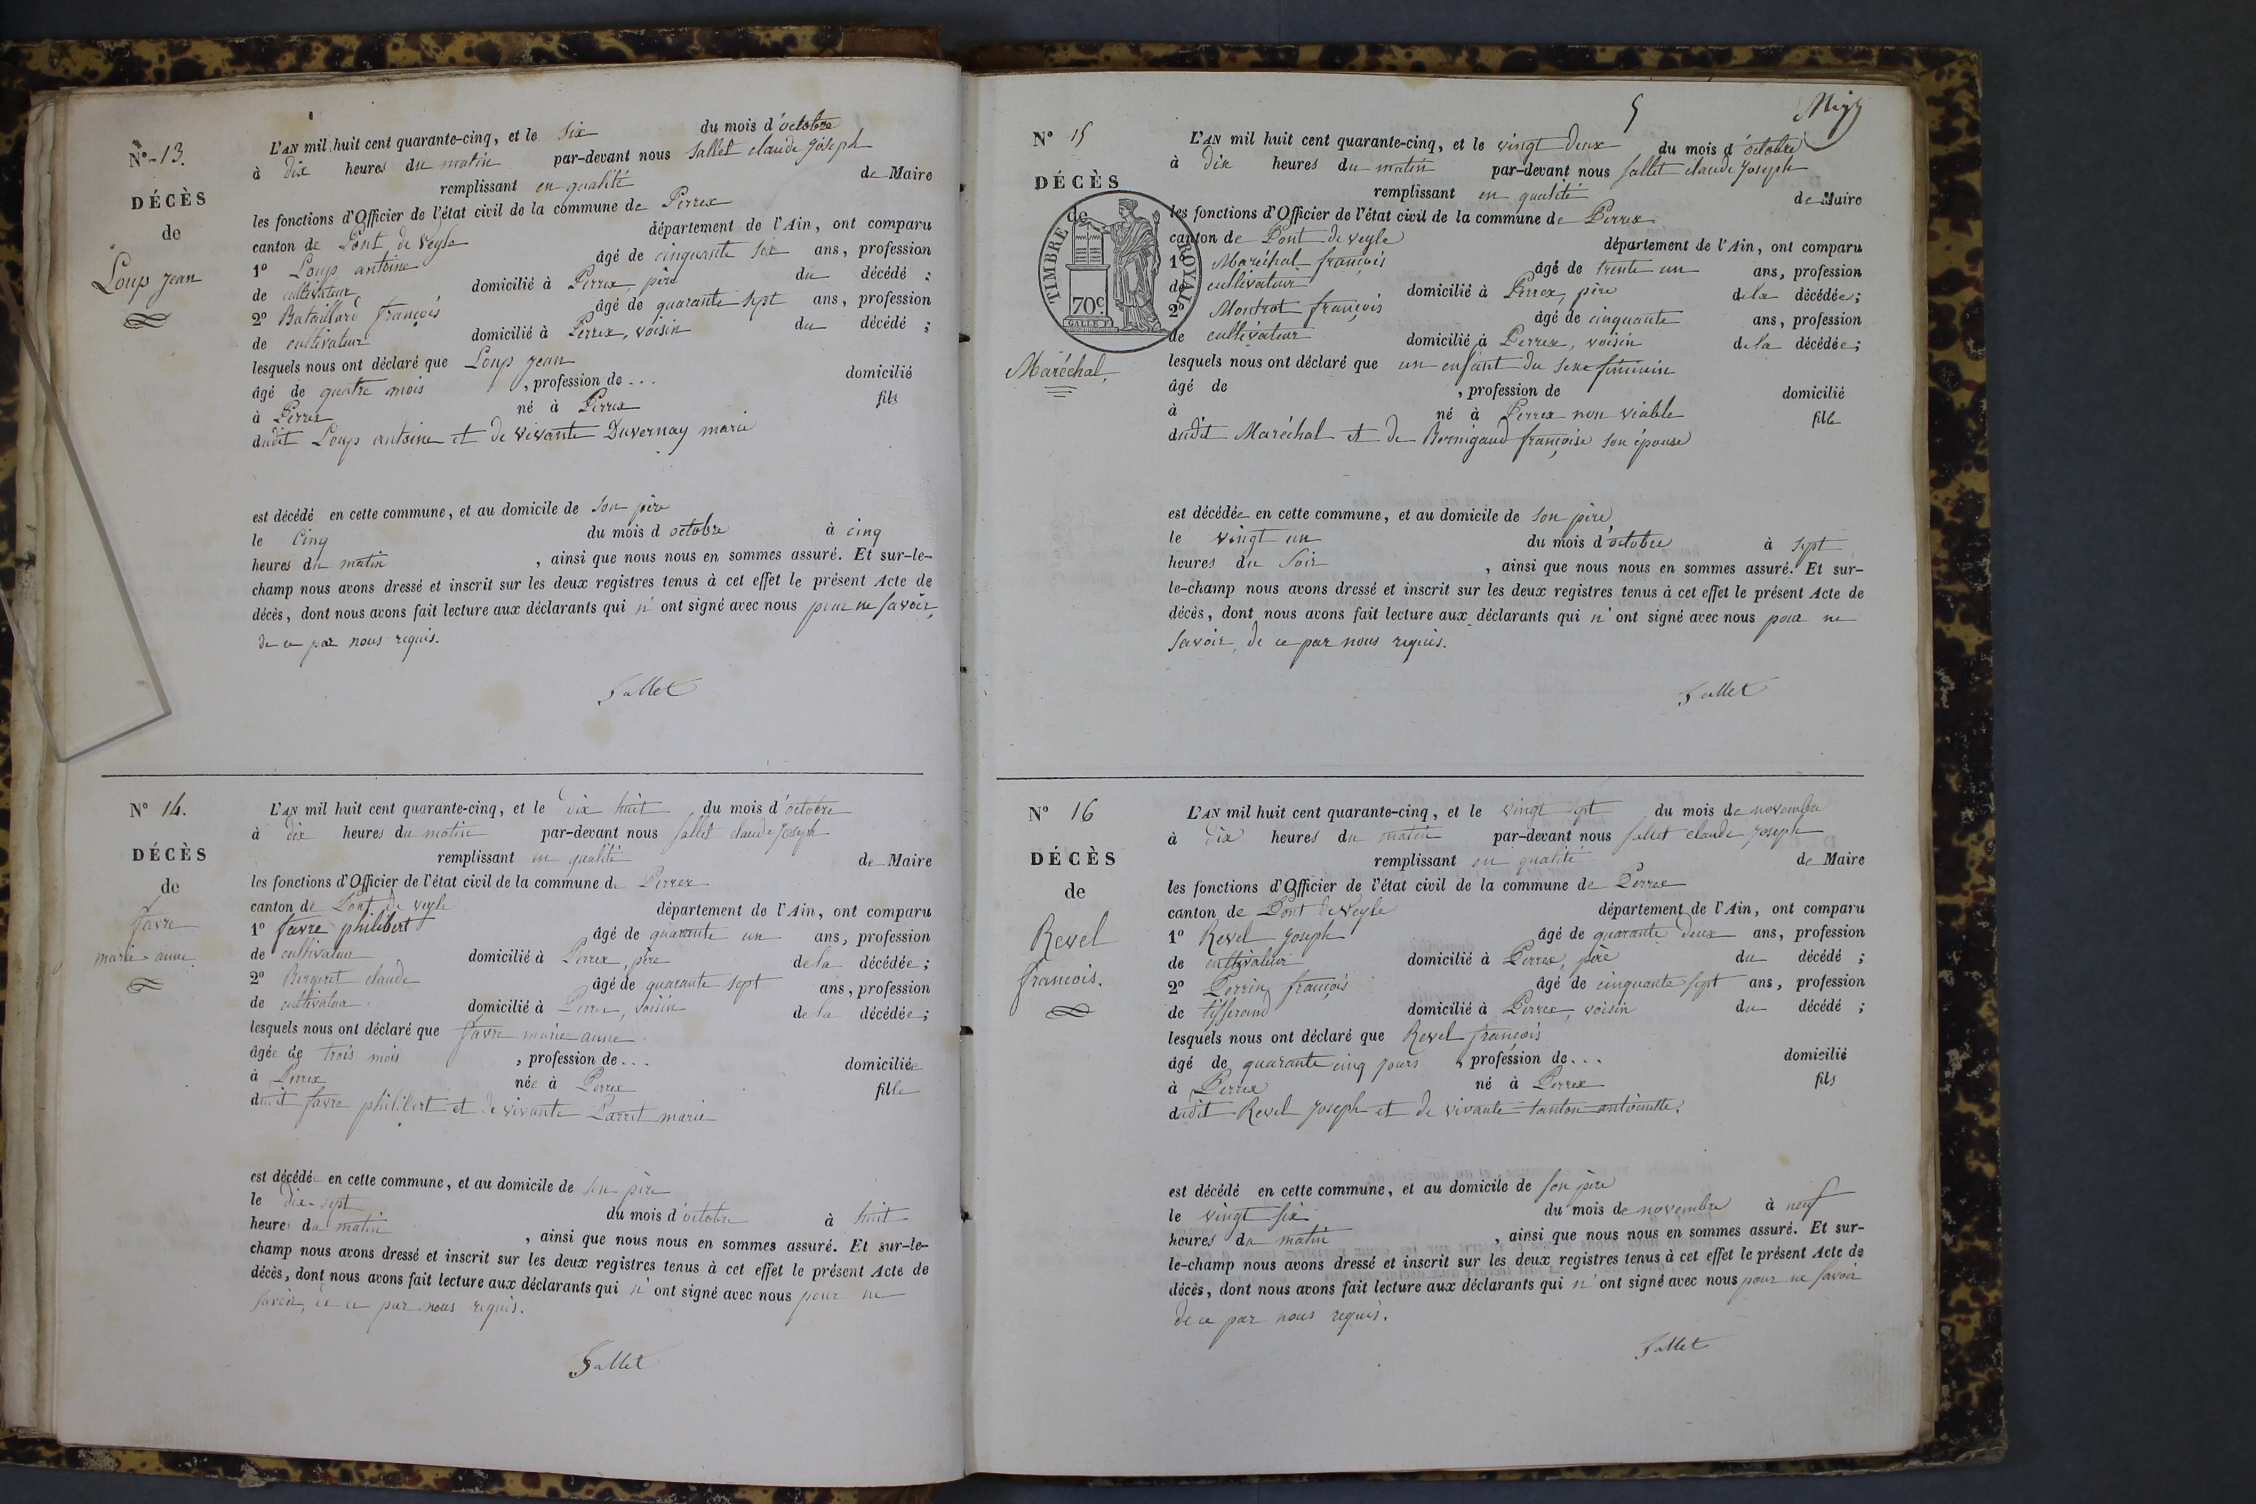 N° 13.
DÉCÈS
de
Loup Jean
L'AN mil huit cent quarante-cinq, et le six du mois d'octobre
à dix heures du matin par-devant nous Sallet claude Joseph
remplissant en qualité de Maire
les fonctions d'Officier de l'état civil de la commune de Perrex
canton de Pont de Veyle département de l'Ain, ont comparu
1° Loup antoine âgé de cinquante six ans, profession
de cultivateur domicilié à Perrex, père du décédé ;
2° Bataillard françois âgé de quarante sept ans, profession
de cultivateur domicilié à Perrex, voisin du décédé ;
lesquels nous ont déclaré que Loup Jean
âgé de quatre mois , profession de... domicilié
à Perrex né à Perrex fils
dudit Loup antoine et de vivante Duvernay marie
est décédé en cette commune, et au domicile de son père
le cinq du mois d octobre à cinq
heures du matin , ainsi que nous nous en sommes assuré. Et sur-le-
champ nous avons dressé et inscrit sur les deux registres tenus à cet effet le présent Acte de
décès, dont nous avons fait lecture aux déclarants qui n'ont signé avec nous pour ne savoir,
de ce par nous requis.
Sallet
N° 14.
DÉCÈS
de
favre
marie anne
L'AN mil huit cent quarante-cinq, et le dix huit du mois d'octobre
à dix heures du matin par-devant nous Sallet claude Joseph
remplissant en qualité de Maire
les fonctions d'Officier de l'état civil de la commune de Perrex
canton de Pont de veyle département de l'Ain, ont comparu
1° favre philibert âgé de quarante un ans, profession
de cultivateur domicilié à Perrex, père de la décédée ;
2° Bergeret claude âgé de quarante sept ans, profession
de cultivateur domicilié à Perrex, voisin de la décédée ;
lesquels nous ont déclaré que favre marie anne
âgée de trois mois , profession de... domiciliée
à Perrex née à Perrex fille
dudit favre philibert et de vivante Parret marie
est décédée en cette commune, et au domicile de son père
le dix-sept du mois d'octobre à huit
heures du matin , ainsi que nous nous en sommes assuré. Et sur-le-
champ nous avons dressé et inscrit sur les deux registres tenus à cet effet le présent Acte de
décès, dont nous avons fait lecture aux déclarants qui n'ont signé avec nous pour ne
savoir, de ce par nous requis.
Sallet
5
N° 15
DÉCÈS
de
TIMBRE ROYAL
70c.
Maréchal,
L'AN mil huit cent quarante-cinq, et le vingt deux du mois d'octobre
à dix heures du matin par-devant nous Sallet claude Joseph
remplissant en qualité de Maire
les fonctions d'Officier de l'état civil de la commune de Perrex
canton de Pont de veyle département de l'Ain, ont comparu
1° Maréchal françois âgé de trente un ans, profession
de cultivateur domicilié à Perrex, père de la décédée ;
2° Montrot françois âgé de cinquante ans, profession
de cultivateur domicilié à Perrex, voisin de la décédée ;
lesquels nous ont déclaré que un enfant du sexe féminin
âgé de , profession de domicilié
à né à Perrex non viable fille
dudit Maréchal et de françoise son épouse
est décédée en cette commune, et au domicile de son père
le vingt un du mois d'octobre à sept
heures du soir , ainsi que nous nous en sommes assuré. Et sur-
le-champ nous avons dressé et inscrit sur les deux registres tenus à cet effet le présent Acte de
décès, dont nous avons fait lecture aux déclarants qui n'ont signé avec nous pour ne
savoir, de ce par nous requis.
Sallet
N° 16
DÉCÈS
de
Revel
françois.
L'AN mil huit cent quarante-cinq, et le vingt sept du mois de novembre
à dix heures du matin par-devant nous Sallet claude Joseph
remplissant en qualité de Maire
les fonctions d'Officier de l'état civil de la commune de Perrex
canton de Pont de Veyle département de l'Ain, ont comparu
1° Revel Joseph âgé de quarante deux ans, profession
de cultivateur domicilié à Perrex, père du décédé ;
2° Perrin françois âgé de cinquante sept ans, profession
de tisserand domicilié à Perrex, voisin du décédé ;
lesquels nous ont déclaré que Revel françois
âgé de quarante cinq jours , profession de... domicilié
à Perrex né à Perrex fils
dudit Revel Joseph et de vivante tanton antoinette.
est décédé en cette commune, et au domicile de son père
le vingt six du mois de novembre à neuf
heures du matin , ainsi que nous nous en sommes assuré. Et sur-
le-champ nous avons dressé et inscrit sur les deux registres tenus à cet effet le présent Acte de
décès, dont nous avons fait lecture aux déclarants qui n'ont signé avec nous pour ne savoir
de ce par nous requis.
Sallet